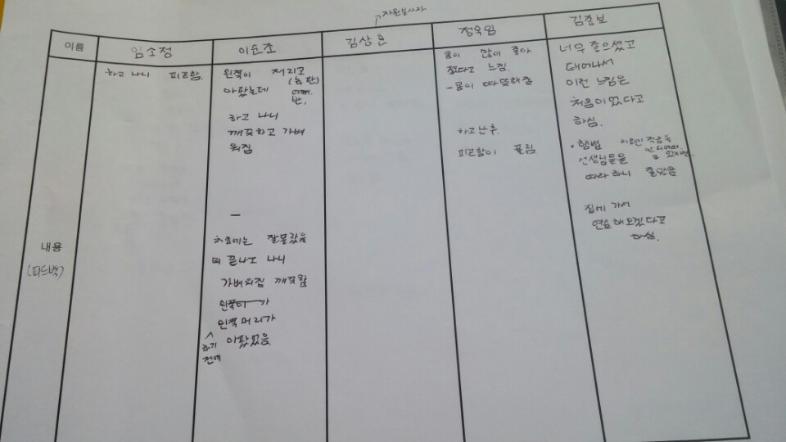 자원봉사자
이름
임소정
이순조
김상훈
정옥임
김경보
하고 나니 피곤함.
왼쪽이 저리고
아팠는데
하고 나니
깨끗하고 가벼
워짐
처음에는 잘 몰랐음
끝나고 나니
가벼워짐 깨끗함
왼쪽머리가
하기 전에
아팠었음
몸이 많이 좋아
졌다고 느낌.
몸이 따뜻해짐
하고난 후
피곤함이 풀림
너무 좋으셨고
태어나서
이런 느낌은
처음이었다고
하심.
선생님들을
따라하니 좋았음
집에 가서
연습해보겠다고
하심.
내용
(피드백)